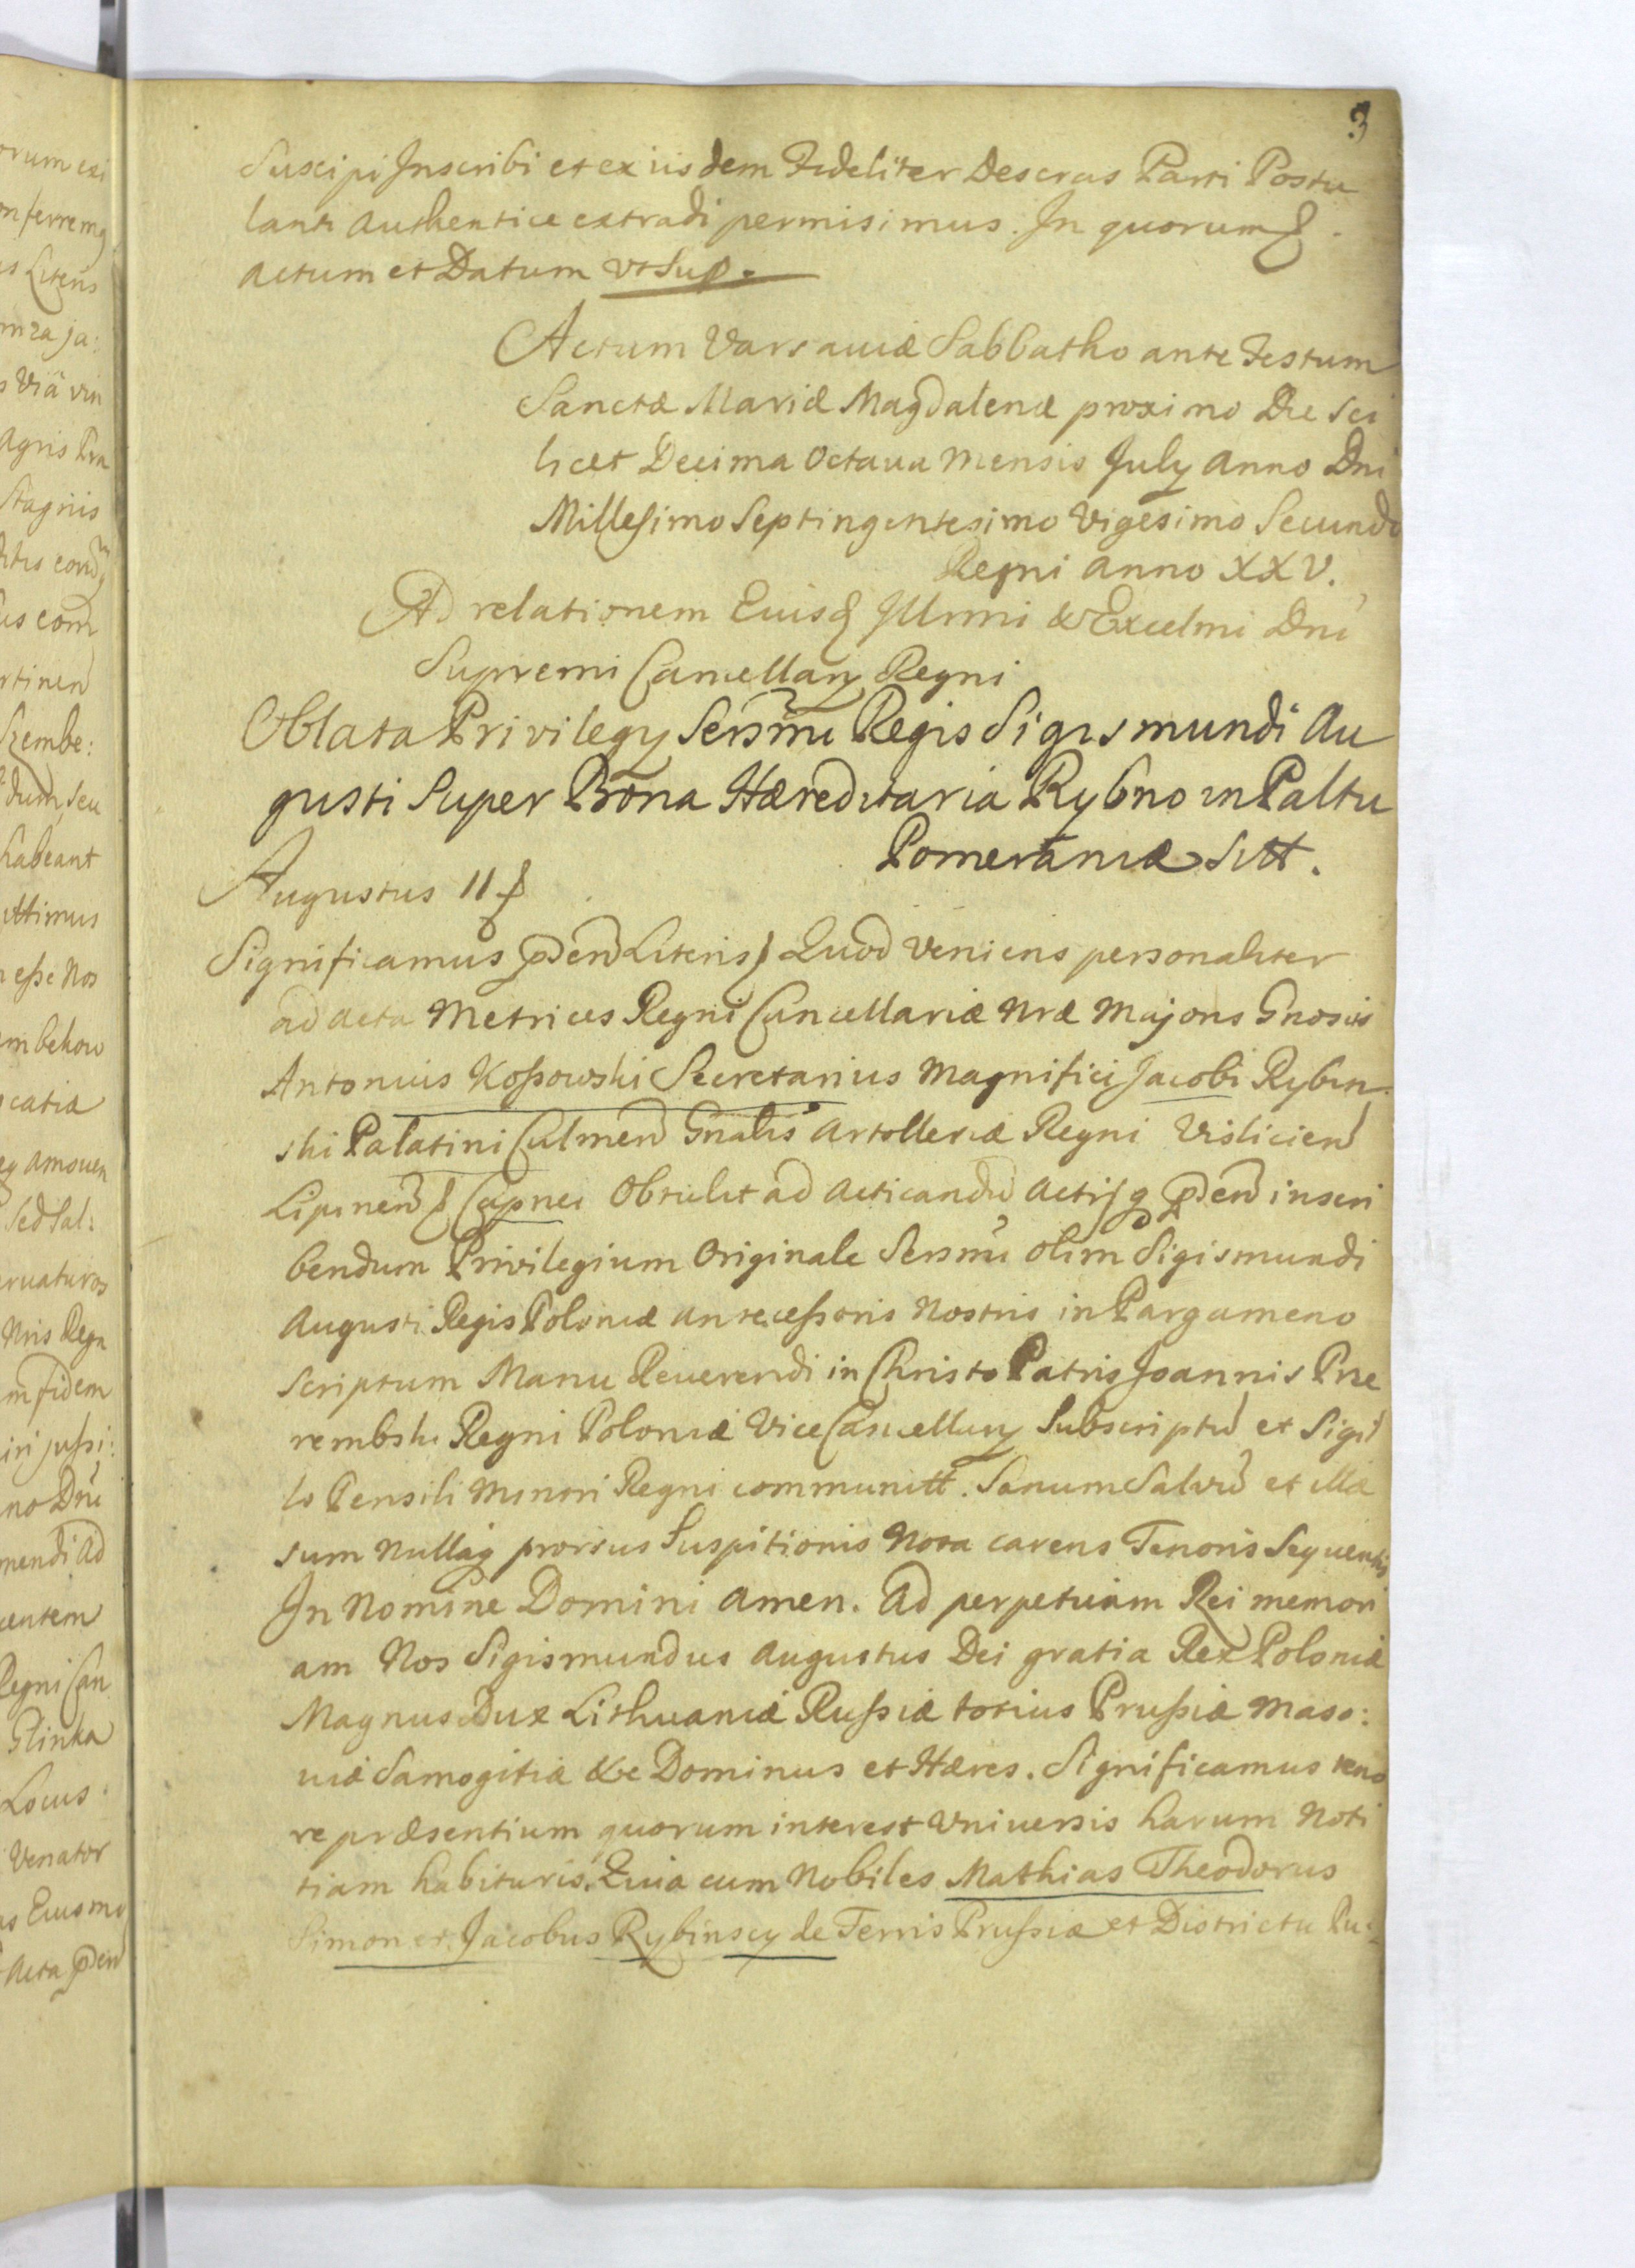 3
Suscipi Inscribi et ex iisdem Fideliter Descras Parti Postu
lanti authentice extradi permisimus. In quorum &
actum et Datum ut Sup.
Actum Varsaviæ Sabbatho ante Festum
Sanctæ Mariæ Magdalenæ proximo Die Sci
licet Decima Octava mensis July anno Dni
Millesimo Septingentesimo Vigesimo Secundo
Regni anno XXV.
Ad relationem Eiusd Illmi & Excelmi Dni
Supremi Cancellary Regni
Oblata Privilegy Sersmi Regis Sigismundi Au
gusti Super Bona Hæreditaria Rybno in Paltu
Pomeraniæ Sitt.
Augustus II &
Significamus pden Literis & Quod veniens personaliter
ad acta Metrices Regni Cancellariæ Nræ Majoris Gnosus
Antonius Kossowski Secretarius Magnifici Jacobi Rybin
ski Palatini Culmen Gnalis Artolleriæ Regni Vislicien
Lipinen & Capnei Obtulit ad acticandu actisq pden inscri
bendum Privilegium Originale Sersmi olim Sigismundi
Augusti Regis Poloniæ antecessoris Nostris in Pargameno
scriptum Manu Reverendi in Christo Patris Joannis Prze
rembski Regni Poloniæ ViceCancellary Subscriptu et Sigil
lo Pensili Minori Regni communitt. Sanum Salvu et illæ
sum Nullaq prorsus Suspitionis Nota carens Tenoris Sequentis
In Nomine Domini Amen. Ad perpetuam Rei memori
am Nos Sigismundus Augustus Dei gratia Rex Poloniæ
Magnus Dux Lithuaniæ Russiæ totius Prussiæ Maso:
viæ Samogitiæ &c Dominus et Hæres. Significamus teno
re præsentium quorum interest Universis harum Noti
tiam habituris. Quia cum Nobiles Mathias Theodorus
Simon et Jacobus Rybinscy de Terris Prussiæ et Districtu Pu: